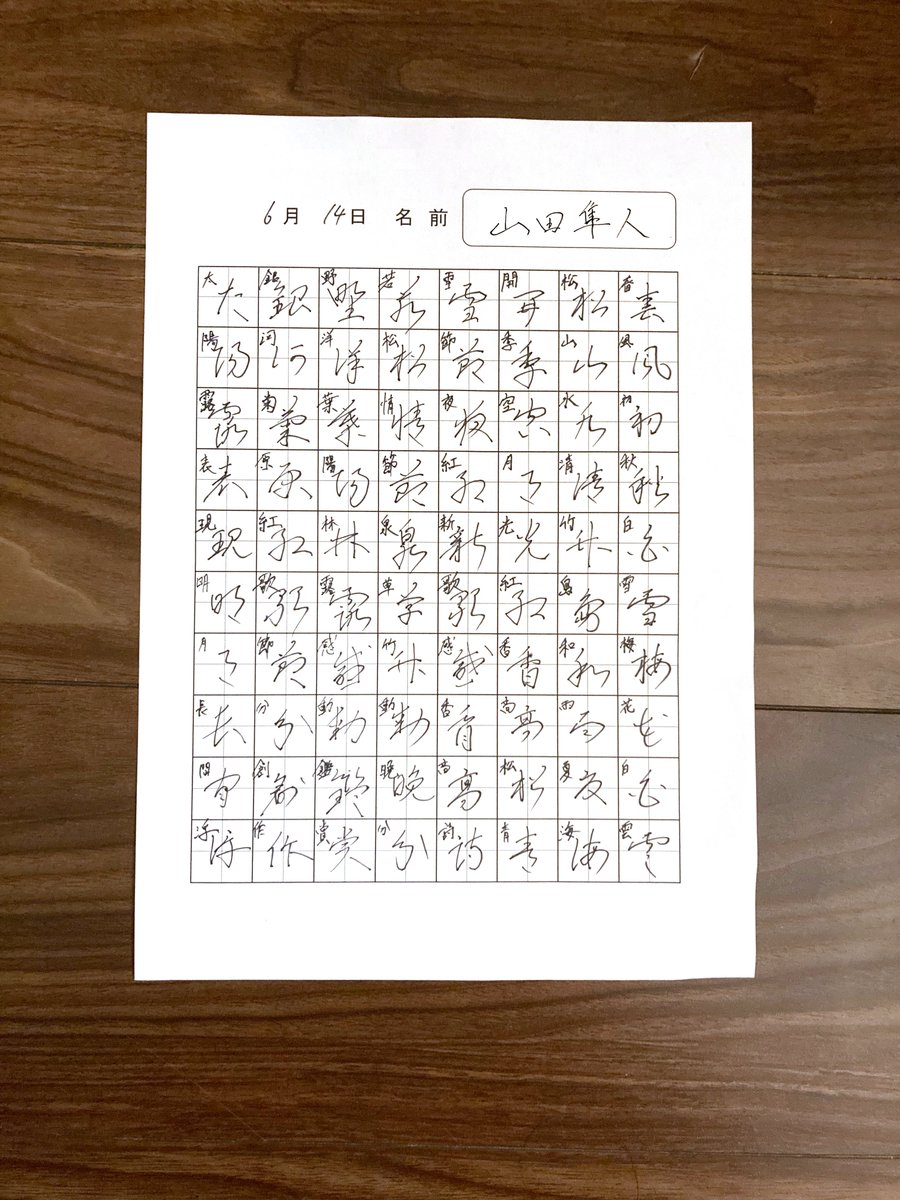 6月 14日 名前 山田隼人
風風初初秋秋白白雪雪梅梅花花白白雲雲
松松山山水水清清竹竹島島和和雨雨夏夏海海
開開季季空空月月光光紅紅香香高高松松青青
雪雪節節夜夜紅紅新新歌歌感感香香高高詩詩
若若松松情情節節泉泉草草竹竹動動晩晩分分
野野洋洋葉葉陽陽林林露露感感動動鑑鑑賞賞
銀銀河河菊菊原原紅紅歌歌節節分分創創作作
太太陽陽露露表表現現明明月月長長間間浮浮